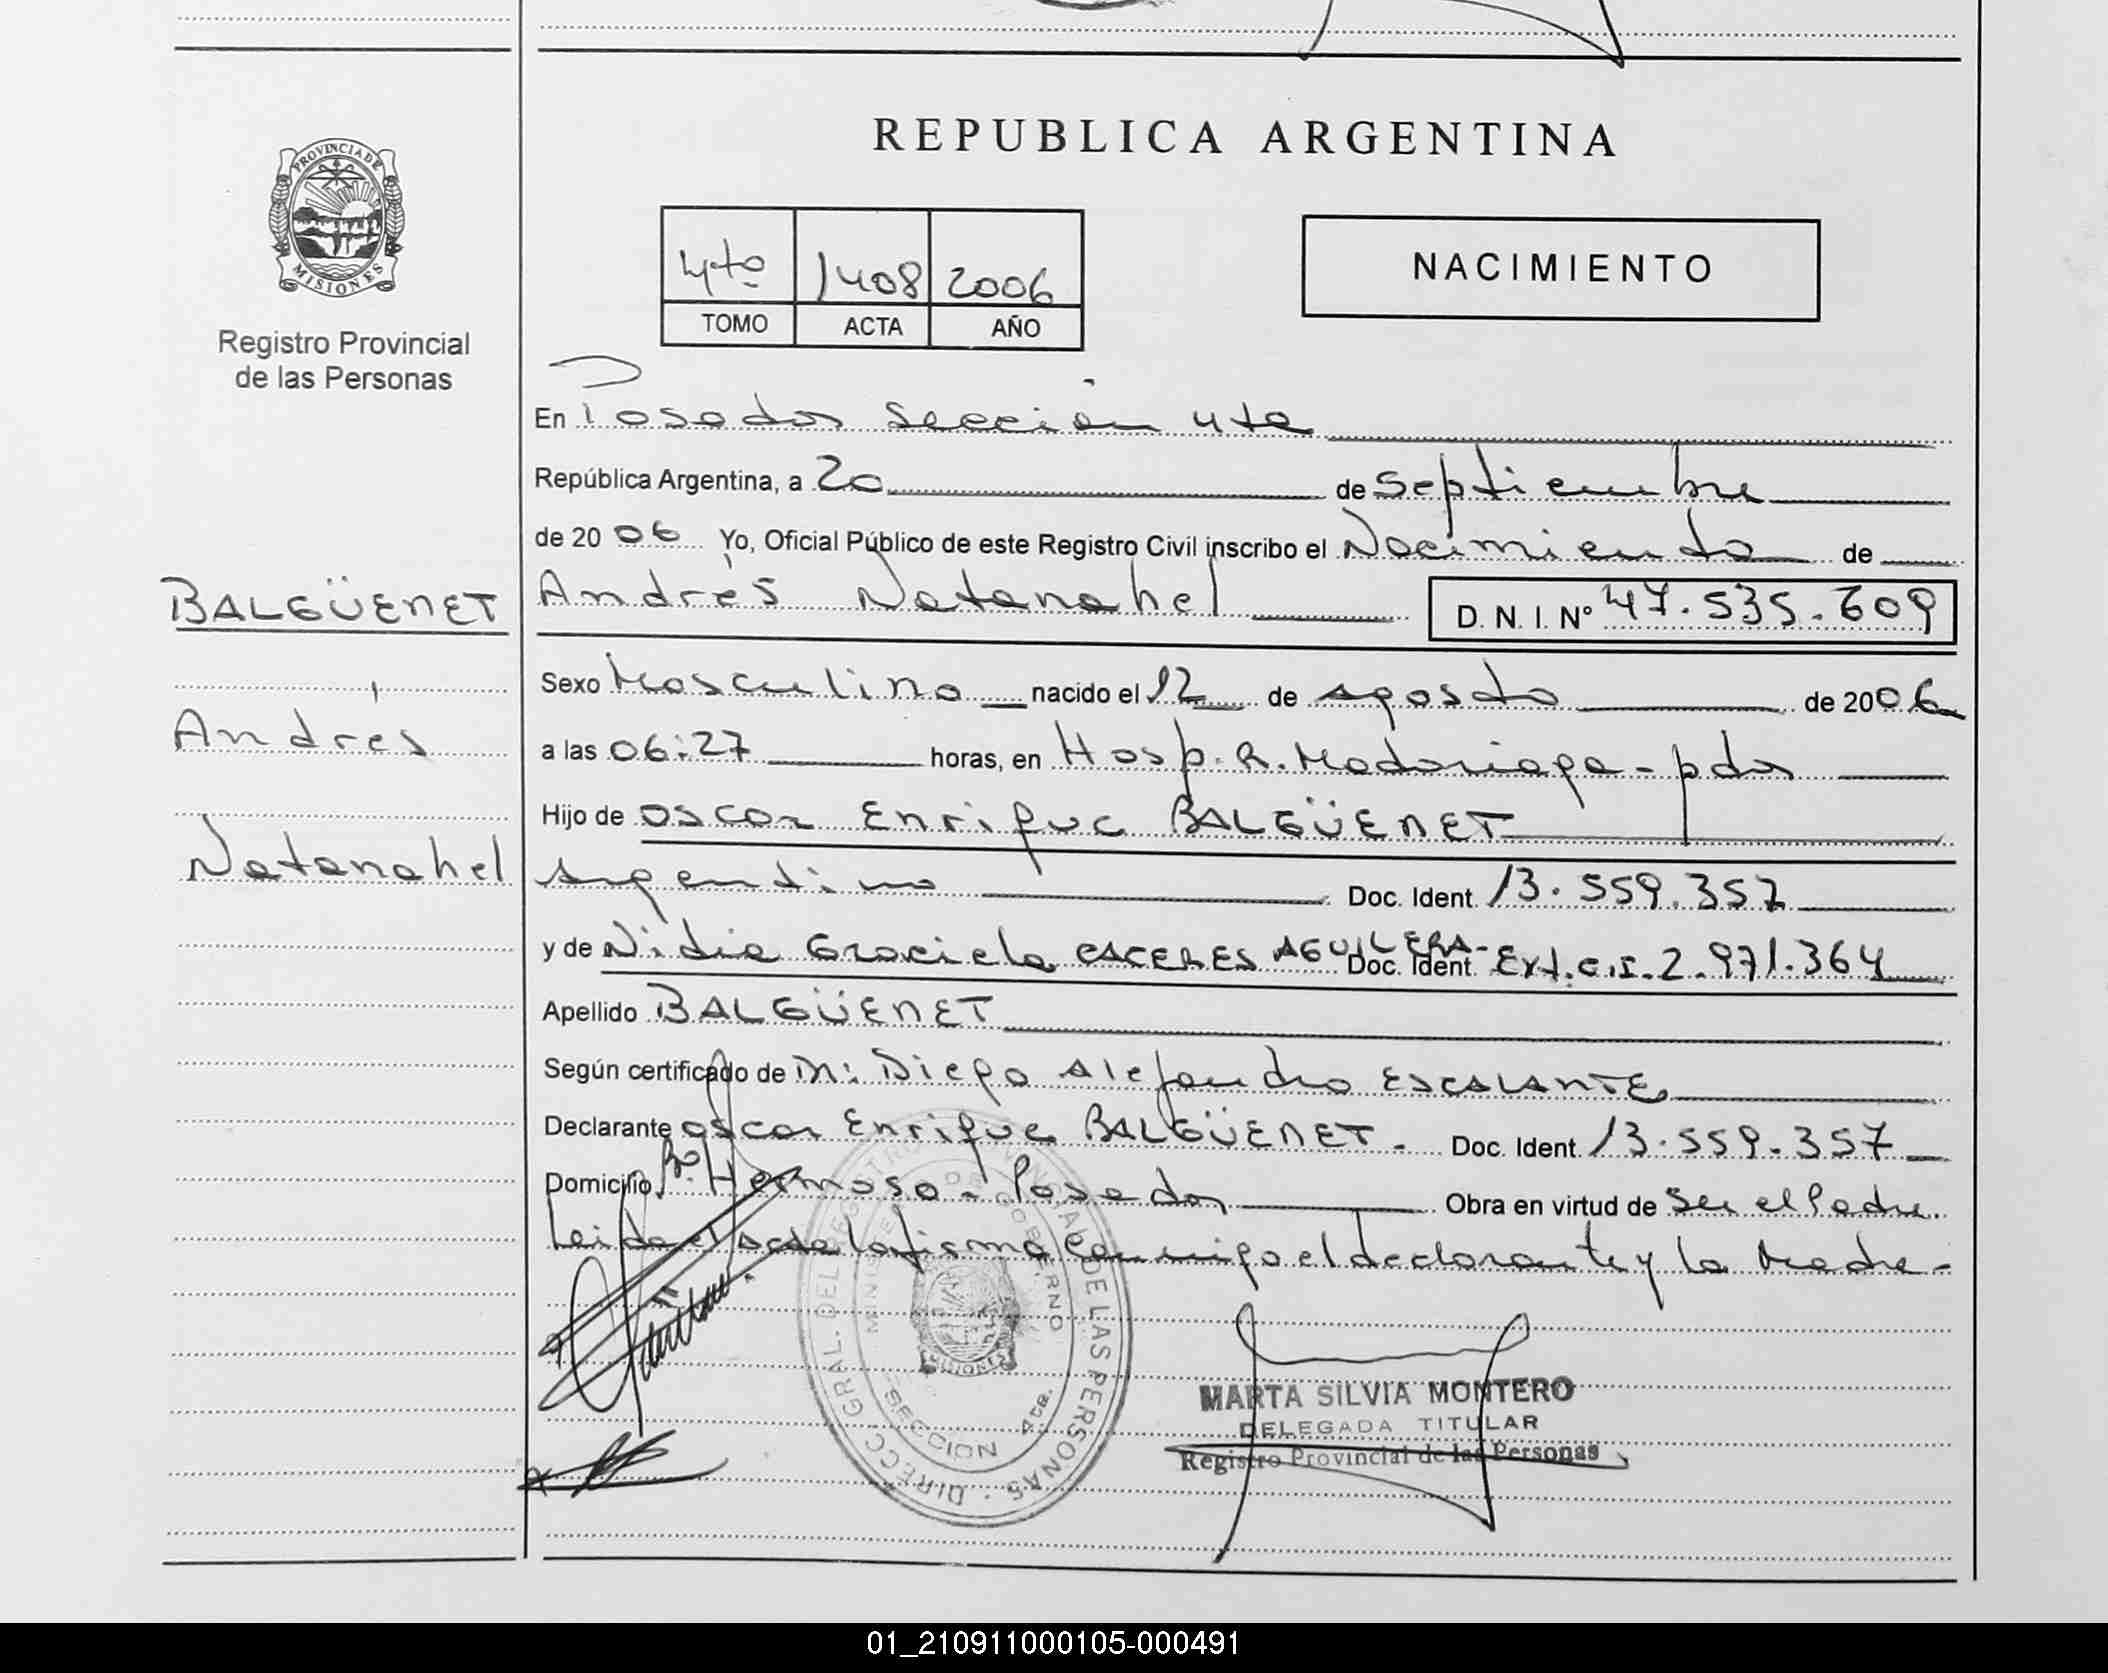 PROVINCIA DE
MISIONES
Registro Provincial
de las Personas
REPUBLICA ARGENTINA
4to 1408 2006
TOMO ACTA AÑO
NACIMIENTO
En Posadas Sección 4ta
República Argentina, a 20 de Septiembre
de 2006 Yo, Oficial Público de este Registro Civil inscribo el Nacimiento de
BALGÜENET
Andrés
Natanahel
Andrés Natanahel D. N. I. Nº 47.535.609
Sexo Masculino nacido el 12 de agosto de 2006
a las 06:27 horas, en Hosp. R. Madariaga - pdas
Hijo de Oscar Enrique BALGÜENET
Argentino Doc. Ident. 13.559.357
y de Nidia Graciela CACERES AGUILERA- Doc. Ident. Ext. C.I. 2.971.364
Apellido BALGÜENET
Según certificado de M: Diego Alejandro ESCALANTE
Declarante Oscar Enrique BALGÜENET. Doc. Ident. 13.559.357
Domicilio Bº. Hermoso - Posadas Obra en virtud de Ser el Padre.
Leida el acta la firma conmigo el declarante y la Madre-
DIRECC. GRAL. DEL REGISTRO PROVINCIAL DE LAS PERSONAS
MINISTERIO DE GOBIERNO
MISIONES
SECCION 4ta.
MARTA SILVIA MONTERO
DELEGADA TITULAR
Registro Provincial de las Personas
01_210911000105-000491